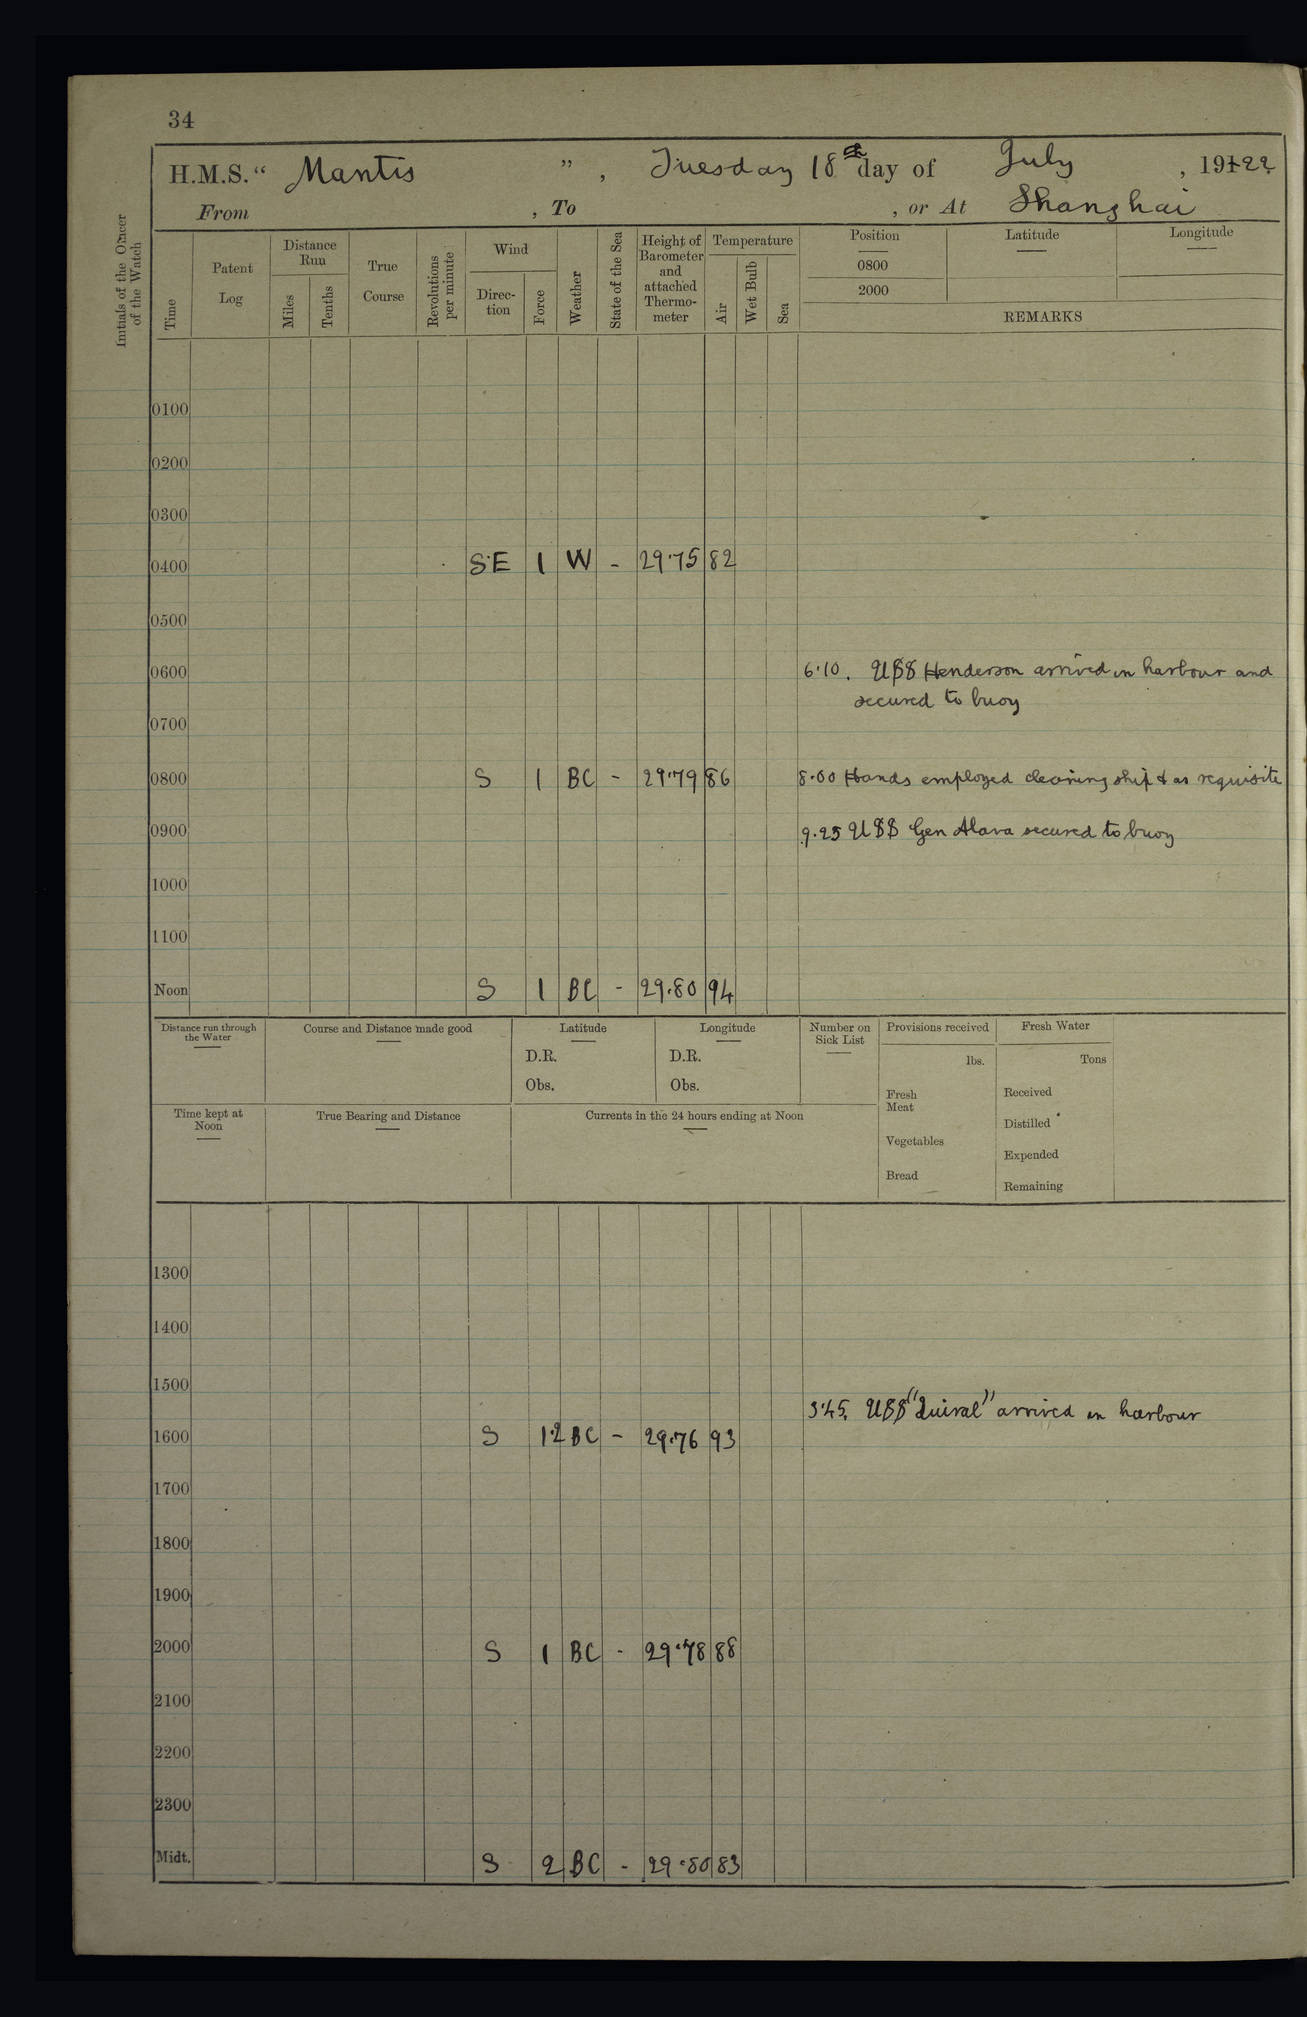 34
H.M.S. “ Mantis ” , Tuesday 18th day of July , 191 22
From , To , or At Shanghai
Initials of the Officer of the Watch
Time
Patent Log
Distance Run
Miles
Tenths
True Course
Revolutions per minute
Wind
Direc-tion
Force
Weather
State of the Sea
Height of Barometer and attached Thermo-meter
Temperature
Air
Wet Bulb
Sea
Position
Latitude
Longitude
0800
2000
REMARKS
0100
0200
0300
0400 S.E 1 W - 29.75 82
0500
0600 6.10. USS Henderson arrived in harbour and
secured to buoy
0700
0800 S 1 BC - 29.79 86 8.00 Hands employed cleaning ship & as requisite
0900 9.25 USS Gen Alava secured to buoy
1000
1100
Noon S 1 BC - 29.80 94
Distance run through the Water
Course and Distance made good
Latitude
D.R.
Obs.
Longitude
D.R.
Obs.
Number on Sick List
Provisions received
lbs.
Fresh Meat
Vegetables
Bread
Fresh Water
Tons
Received
Distilled
Expended
Remaining
Time kept at Noon
True Bearing and Distance
Currents in the 24 hours ending at Noon
1300
1400
1500
3.45. USS "Quiral" arrived in harbour
1600 S 1.2 BC - 29.76 93
1700
1800
1900
2000 S 1 BC - 29.78 88
2100
2200
2300
Midt. S 2 BC - 29.80 83